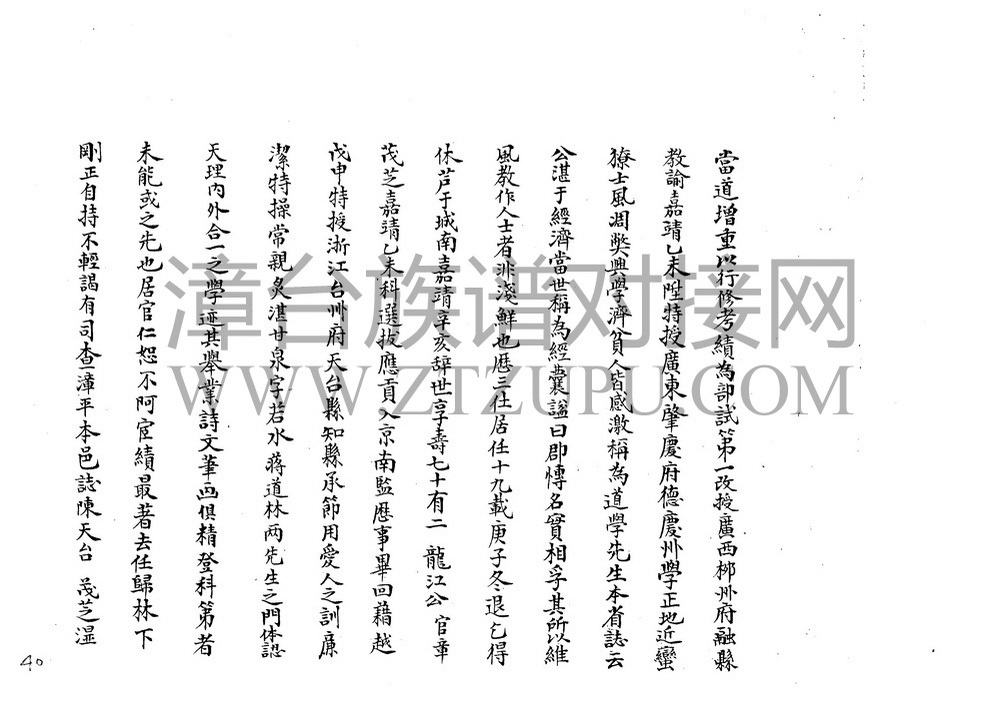 當道增重以行修考績為部試第一改授廣西柳州府融縣
教諭嘉靖乙未陞特授廣東肇慶府德慶州學正地近蠻
獠士風凋獘興學濟貧人皆感激稱為道學先生本省誌云
公湛于經濟當世稱為經囊謚曰郡博名實相孚其所以維
風教作人士者非淺鮮也歷三仕居任十九載庚子冬退乞得
休芦于城南嘉靖辛亥辞世享壽七十有二 龍江公 官章
茂芝嘉靖乙未科選拔應貢入京南監歷事畢回藉越
戊申特授浙江台州府天台縣知縣承節用愛人之訓廉
潔特操常親炙湛甘泉字若水蔣道林两先生之門体認
天理内外合一之學迹其舉業詩文筆画俱精登科第者
未能或之先也居官仁恕不阿宦績最著去任歸林下
剛正自持不輕謁有司查漳平本邑誌陳天台 茂芝湿
40
漳台族谱对接网
WWW.ZTZUPU.COM